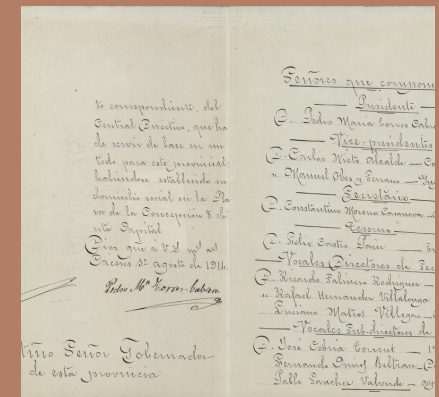 to correspondiente, del
Central Directivo, que ha
de servir de base en un
todo para este provincial;
habiéndose establecido su
domicilio social en la Pla
za de la Concepción 8 de
esta Capital.
Dios gue á V.S. ms. as.
Cáceres 5 agosto de 1914.
Pedro Mª Torres-Cabrera
tmo Señor Gobernador
de esta provincia
Señores que compone
Presidente
D. Pedro María Torres Cabr
Vice-presidentes
D. Carlos Nieto Alcalde
" Manuel Obes y Serrano
Secretario
D. Constantino Moreno Casanova
Tesorero
D. Felix Castro
Vocales Directores de Sec
D. Ricardo Palmero Rodriguez
" Rafael Hernandez Villalonga
Luciano Mateos Villegas
Vocales Sub-directores de
D. José Cebria Torrent
Fernando Beltran
Pablo Sanchez Valverde